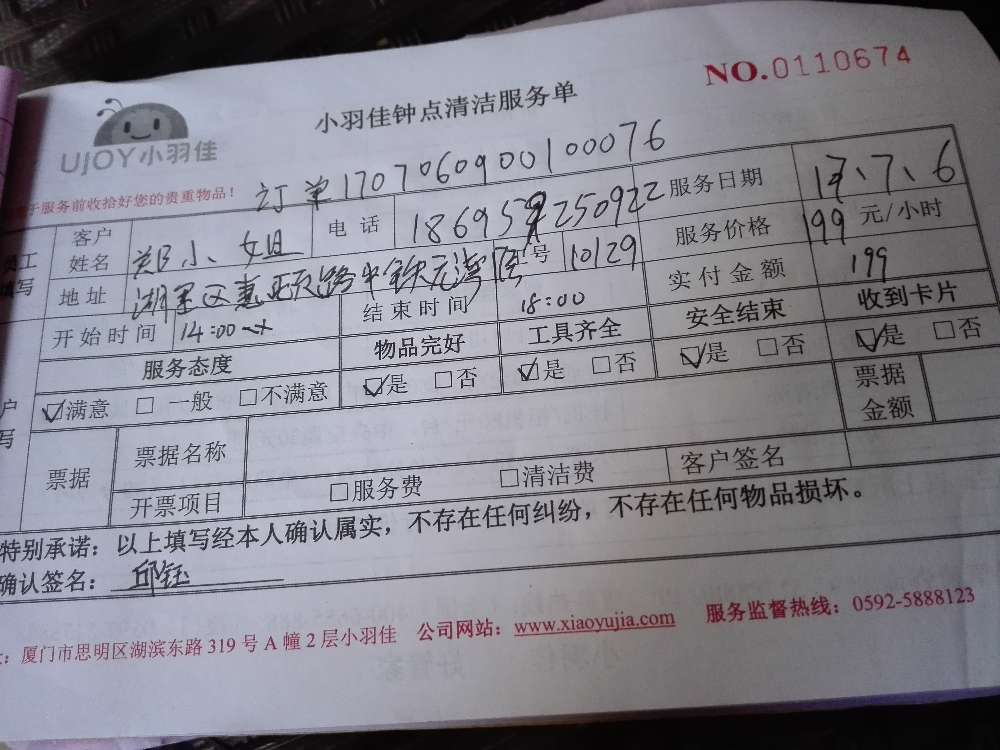 NO.0110674
小羽佳钟点清洁服务单
UJOY小羽佳
于服务前收拾好您的贵重物品！
订单1707060900100076
客户姓名 郑小姐 电话 服务日期 17、7、6
地址 湖里区 路中铁元湾 号 10129 服务价格 199 元/小时
开始时间 14:00 结束时间 18:00 实付金额 199
服务态度 物品完好 工具齐全 安全结束 收到卡片
☑满意 □ 一般 □不满意 ☑是 □否 ☑是 □否 ☑是 □否 ☑是 □否
票据 票据名称 票据金额
开票项目 □服务费 □清洁费 客户签名
特别承诺：以上填写经本人确认属实，不存在任何纠纷，不存在任何物品损坏。
确认签名：邱钰
厦门市思明区湖滨东路 319 号 A 幢 2 层小羽佳 公司网站：www.xiaoyujia.com 服务监督热线：0592-5888123